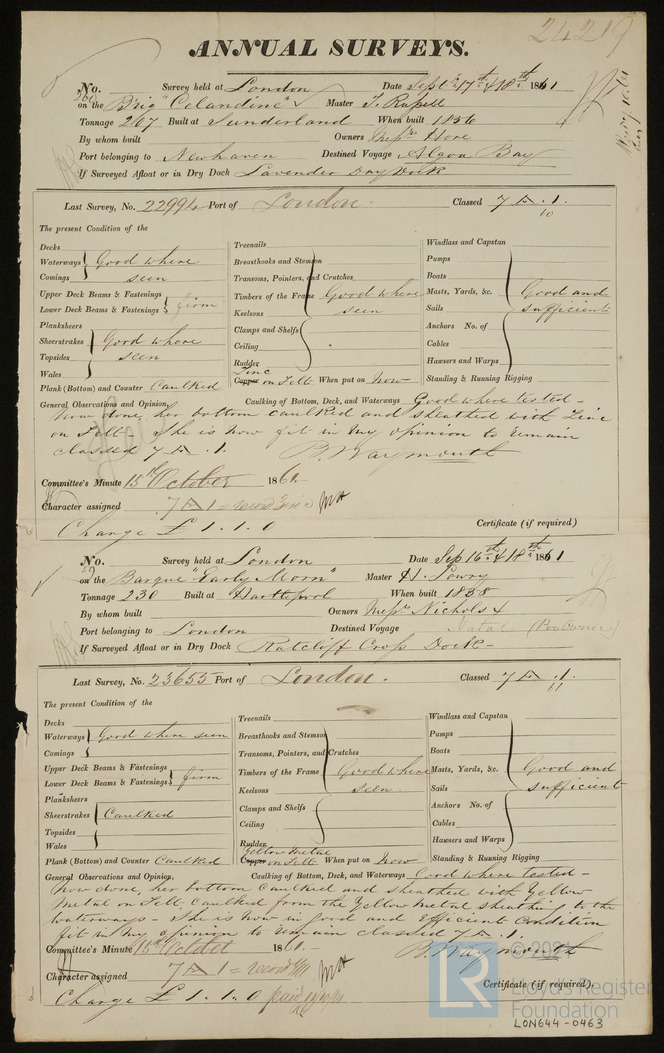 24219
ANNUAL SURVEYS.
No. Survey held at London Date Sept 17th & 18th 1861
on the Brig "Celandine" Master T. Russell
Tonnage 267 Built at Sunderland When built 1856
By whom built Owners Messrs Hore
Port belonging to Newhaven Destined Voyage Algoa Bay
If Surveyed Afloat or in Dry Dock Lavender Dry Dock
Last Survey, No. 22994 Port of London. Classed 7 A. 1.
10
The present Condition of the
Decks
Waterways Good where
Comings seen
Upper Deck Beams & Fastenings
Lower Deck Beams & Fastenings firm
Planksheers
Sheerstrakes Good where
Topsides seen
Wales
Plank (Bottom) and Counter Caulked
Treenails
Breasthooks and Stemson
Transoms, Pointers, and Crutches
Timbers of the Frame Good where
Keelsons seen
Clamps and Shelfs
Ceiling
Rudder
Zinc
Copper on Felt When put on Now
Windlass and Capstan
Pumps
Boats
Masts, Yards, &c. Good and
Sails sufficient
Anchors No. of
Cables
Hawsers and Warps
Standing & Running Rigging
General Observations and Opinion, Caulking of Bottom, Deck, and Waterways Good where tested -
Now done, her bottom caulked and sheathed with Zinc
on Felt - She is now fit in my opinion to remain
classed 7 A. 1. B. Waymouth
Committee's Minute 15th October 1861.
Character assigned 7 A 1 =
Charge £ 1. 1. 0 Certificate (if required)
No. Survey held at London Date Sep 16th & 18th 1861
59
on the Barque "Early Morn" Master H. Lowry
Tonnage 230 Built at Hartlepool When built 1858
By whom built Owners Messrs Nichols &
Port belonging to London Destined Voyage Natal
If Surveyed Afloat or in Dry Dock Ratcliff Cross Dock -
Last Survey, No. 23655 Port of London. Classed 7 A. 1.
11
The present Condition of the
Decks
Waterways Good where seen
Comings
Upper Deck Beams & Fastenings
Lower Deck Beams & Fastenings firm
Planksheers
Sheerstrakes Caulked
Topsides
Wales
Plank (Bottom) and Counter Caulked
Treenails
Breasthooks and Stemson
Transoms, Pointers, and Crutches
Timbers of the Frame Good where
Keelsons seen
Clamps and Shelfs
Ceiling
Rudder
Yellow Metal
Copper on Felt When put on Now
Windlass and Capstan
Pumps
Boats
Masts, Yards, &c. Good and
Sails sufficient
Anchors No. of
Cables
Hawsers and Warps
Standing & Running Rigging
General Observations and Opinion, Caulking of Bottom, Deck, and Waterways Good where tested -
Now done, her bottom Caulked and sheathed with Yellow
Metal on Felt, Caulked from the Yellow Metal sheathing to the
waterways - She is now in good and Efficient Condition
fit in my opinion to remain classed 7 A. 1.
Committee's Minute 15th October 1861. B. Waymouth
Character assigned 7 A 1 =
Charge £ 1. 1. 0 paid Certificate (if required)
© 2021
LR
Lloyd's Register
Foundation
LON644-0463